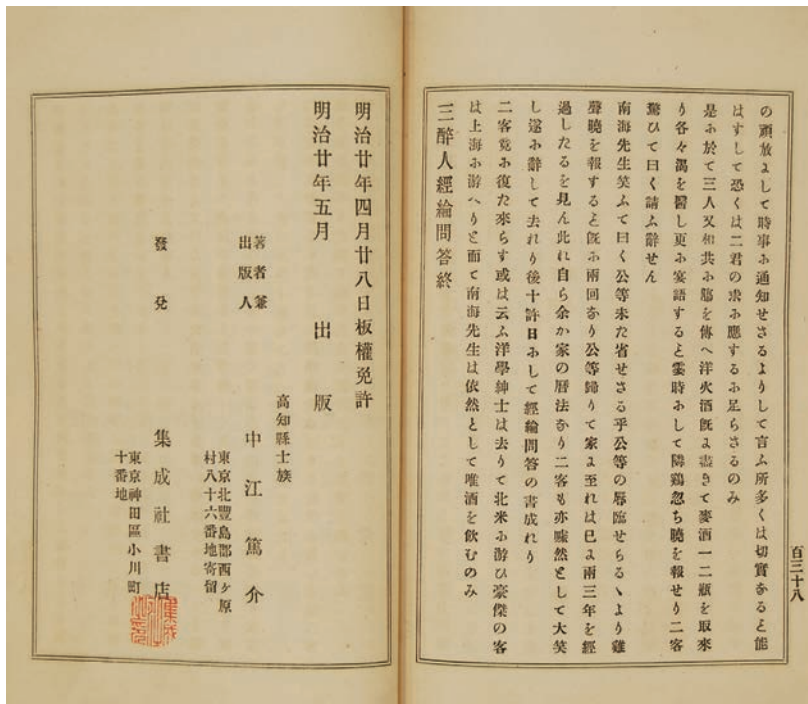 百三十八
の頑放よして時事ふ通知せさるよりして言ふ所多くは切實なると能
はすして恐くは二君の求ふ應するふ足らさるのみ
是ふ於て三人又相共ふ觴を傳へ洋火酒旣よ盡きて麥酒一二瓶を取來
り各々渴を醫し更ふ宴語すると霎時ふして隣鷄忽ち曉を報せり二客
驚ひて曰く請ふ辭せん
南海先生笑ふて曰く公等未た省せさる乎公等の辱臨せらるゝより雞
聲曉を報すると旣ふ兩回なり公等歸りて家よ至れは已よ兩三年を經
過したるを見ん此れ自ら余か家の曆法なり二客も亦噱然として大笑
し遂ふ辭して去れり後十許日ふして經綸問答の書成れり
二客竟ふ復た來らす或は云ふ洋學紳士は去りて北米ふ游ひ豪傑の客
は上海ふ游へりと而て南海先生は依然として唯酒を飮むのみ
三醉人經綸問答終
明治廿年四月廿八日板權免許
明治廿年五月 出版
高知縣士族
著者兼
出版人 中江篤介
東京北豐島郡西ヶ原
村八十六番地寄留
發兌 集成社書店
東京神田區小川町
十番地